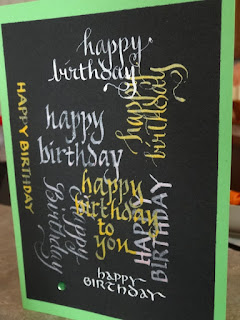 happy
birthday
happy
birthday
HAPPY BIRTHDAY
happy
birthday
happy
birthday
to
you
happy
birthday
HAPPY
BIRTHDAY
happy
birthday